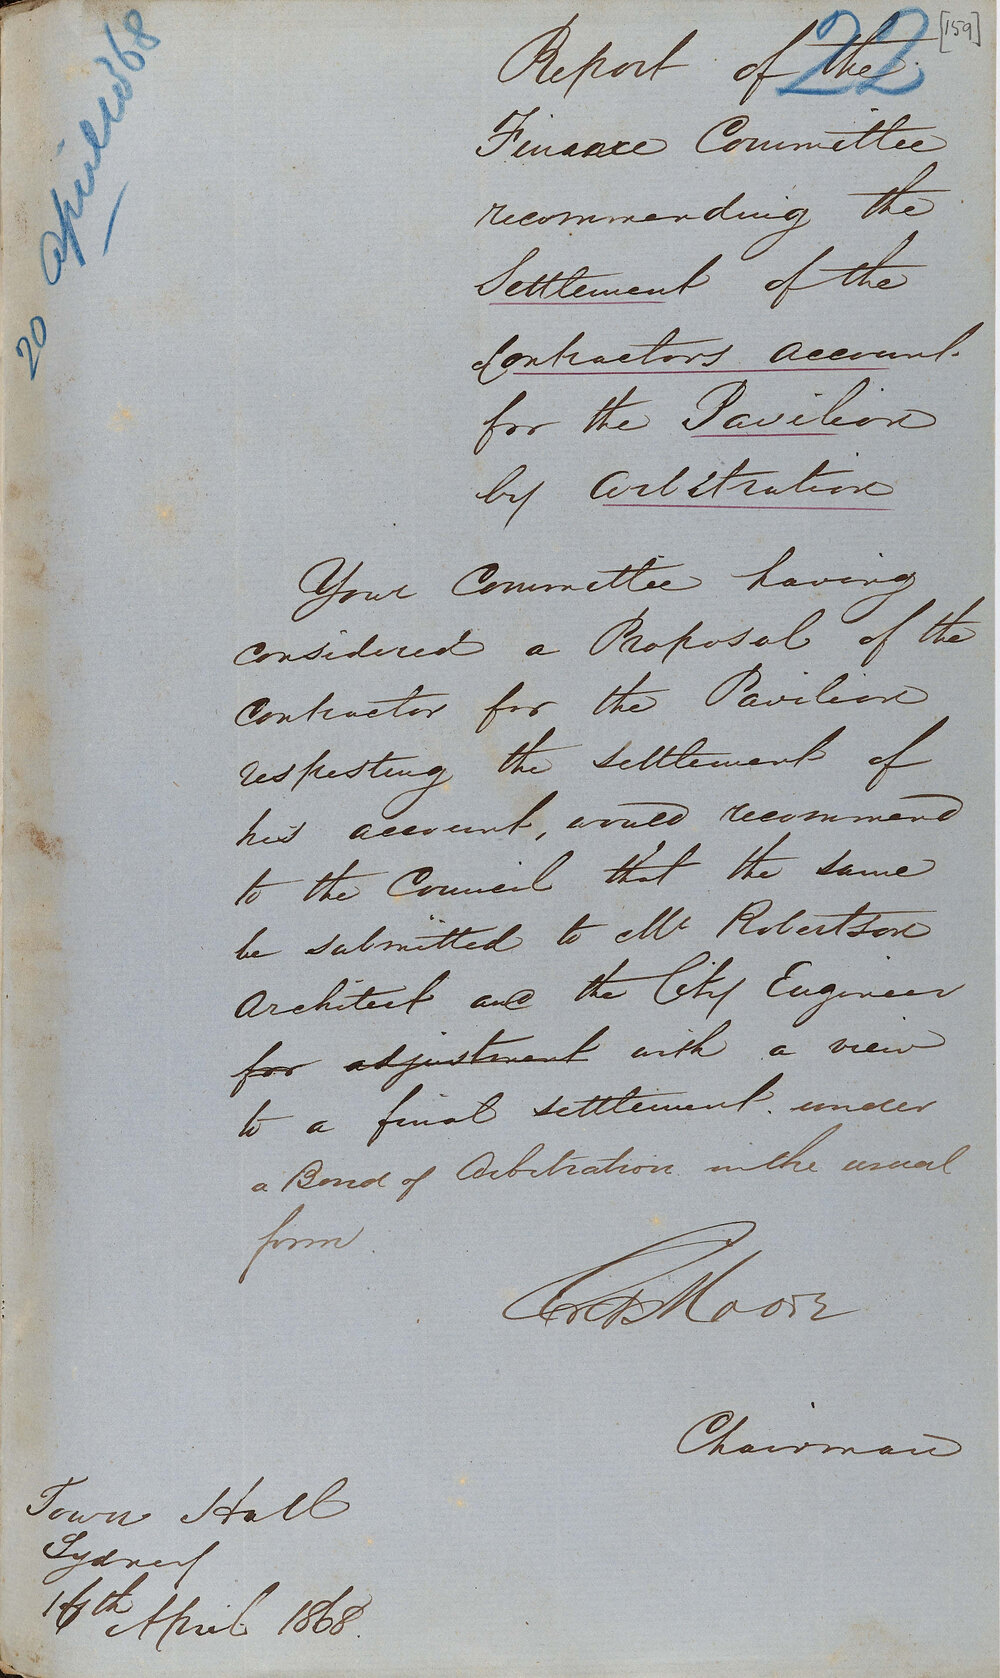 [159]
22
20 April 1868
Report of the
Finance Committee
recommending the
Settlement of the
Contractors account
for the Pavilion
by Arbitration
Your Committee having
considered a Proposal of the
Contractor for the Pavilion
respecting the settlement of
his account, would recommend
to the Council that the same
be submitted to Mr Robertson
Architect and the City Engineer
for adjustment with a view
to a final settlement under
a Bond of Arbitration in the usual
form
Moore
Chairman
Town Hall
Sydney
16th April 1868.